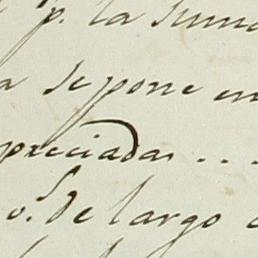 p. la suma
a se pone en
preciadas . . .
o. de largo